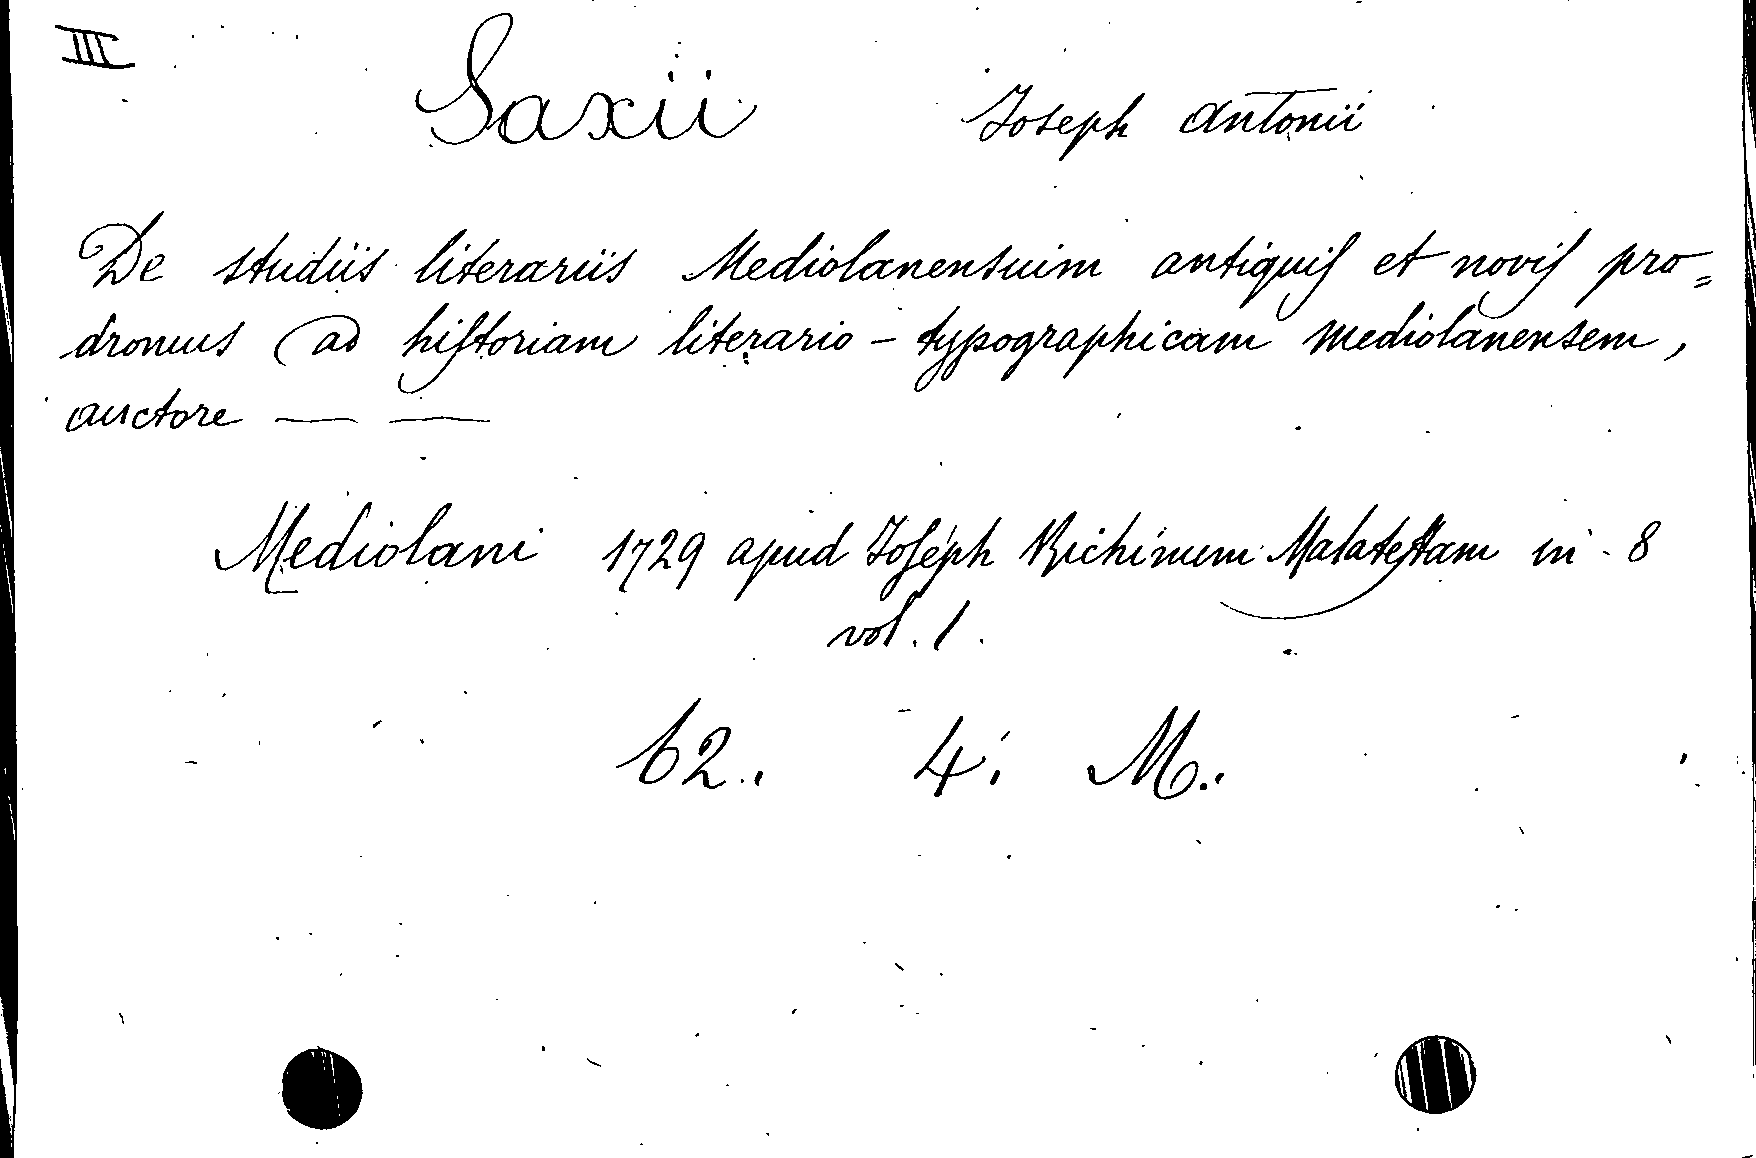 III
Saxii Joseph Antonii
De studiis literariis Mediolanensium antiquis et novis pro=
dromus ad historiam literario-typographicam mediolanensem,
auctore — —
Mediolani 1729 apud Joseph Richinum Malatestam in-8
vol. 1.
62. 4. M.